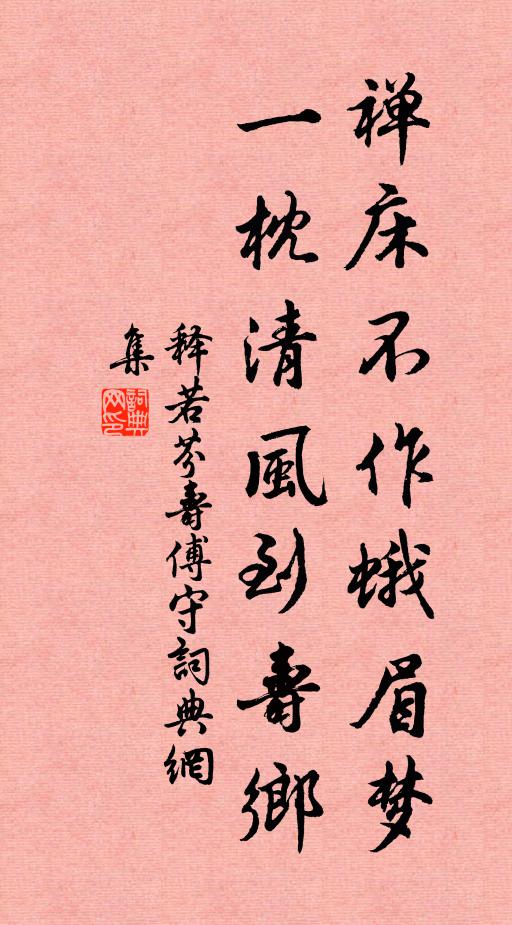 禅床不作蛾眉梦
一枕清風到壽鄉
释若芬壽傅守詞典網
集
詞典网印